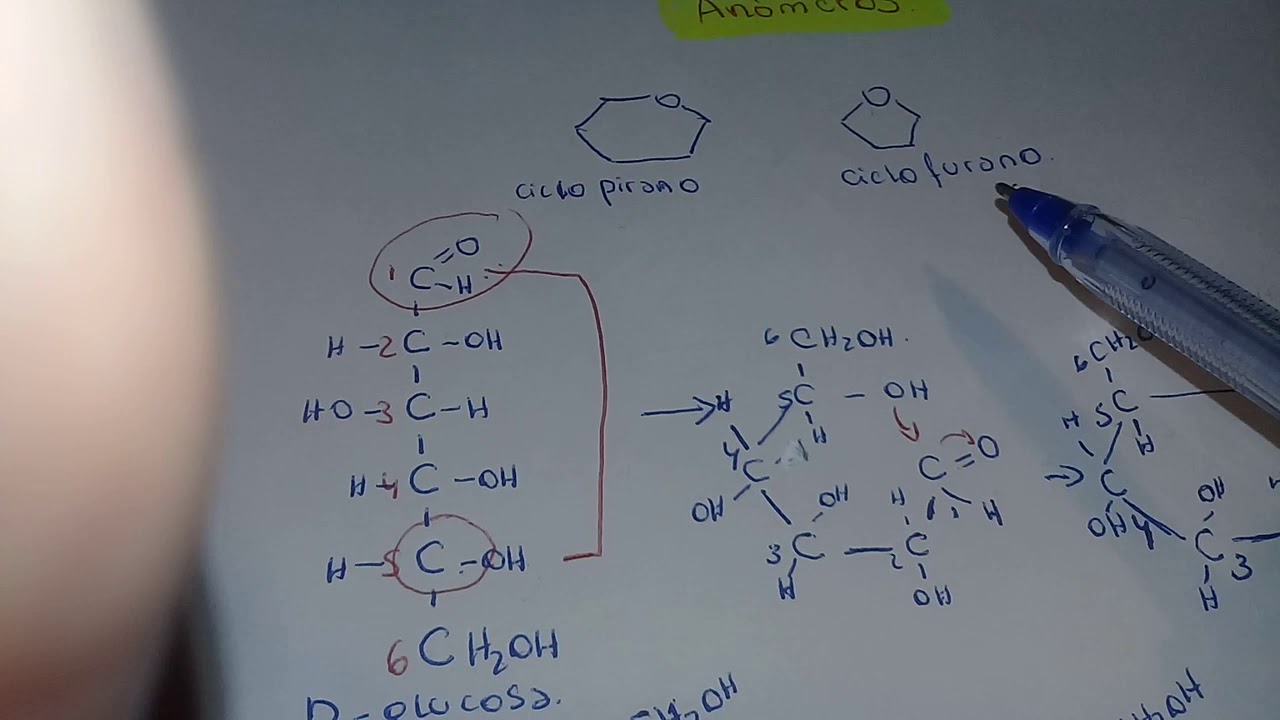 Anómeros.
O O
ciclo pirano
ciclo furano.
O
1 C-H
H-2C-OH
HO-3C-H
H-4C-OH
H-5C-OH
6CH2OH
D-glucosa.
6 CH2OH.
H 5C - OH
H
4C
C=O
OH OH H H
3C - 2C
H OH
6CH2O
H 5C
H
C
OH 4 OH
C 3
H
CH2OH
H2OH